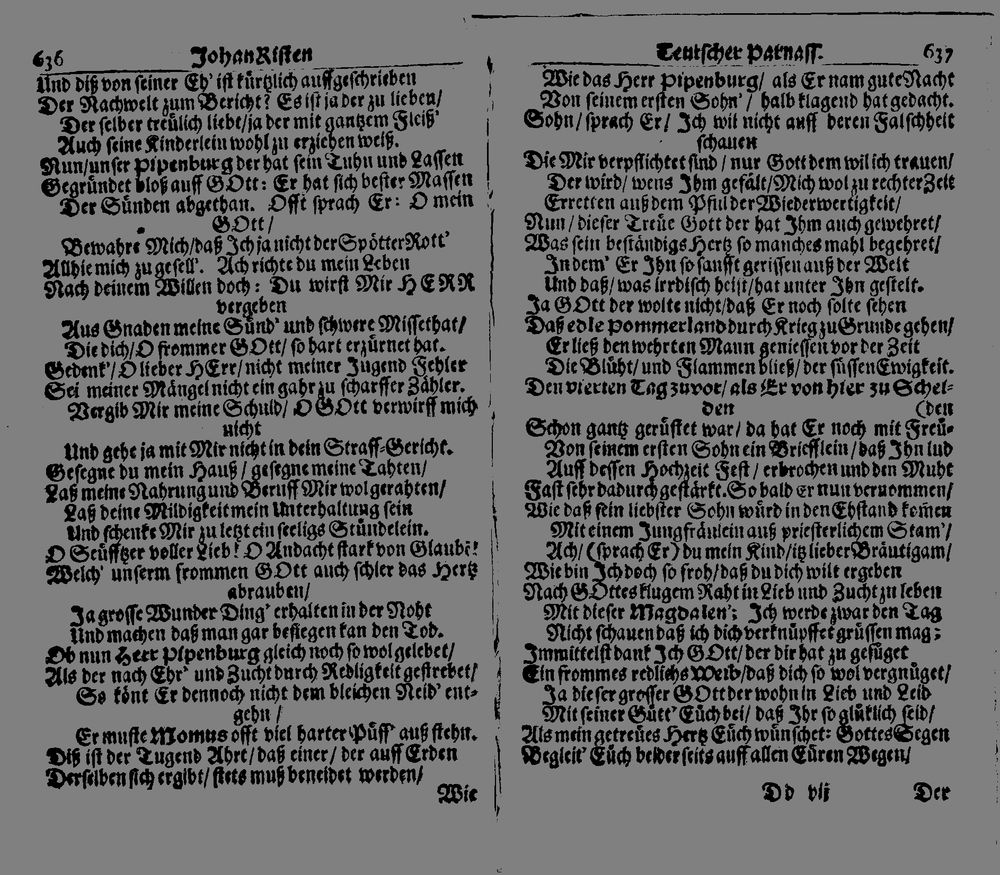 636 Johan Risten
Und diß von seiner Eh' ist kürtzlich auffgeschrieben
Der Nachwelt zum Bericht? Es ist ja der zu lieben/
Der selber treülich liebt/ja der mit gantzem Fleiß'
Auch seine Kinderlein wohl zu erziehen weiß.
Nun/unser Pipenburg der hat sein Tuhn und Lassen
Gegründet bloß auff GOtt: Er hat sich bester Massen
Der Sünden abgethan. Offt sprach Er: O mein
GOtt/
Bewahre Mich/daß Ich ja nicht der Spötter Rott'
Allhie mich zu gesell'. Ach richte du mein Leben
Nach deinem Willen doch: Du wirst Mir HERR
vergeben
Aus Gnaden meine Sünd' und schwere Missethat/
Die dich/O frommer GOtt/so hart erzürnet hat.
Gedenk'/O lieber HErr/nicht meiner Jugend Fehler
Sei meiner Mängel nicht ein gahr zu scharffer Zähler.
Vergib Mir meine Schuld/ O GOtt verwirff mich
nicht
Und gehe ja mit Mir nicht in dein Straff-Gericht.
Gesegne du mein Hauß/ gesegne meine Tahten/
Laß meine Nahrung und Beruff Mir wol gerahten/
Laß deine Mildigkeit mein Unterhaltung sein
Und schenke Mir zu letzt ein seeligs Stündelein.
O Seüfftzer voller Lieb! O Andacht stark von Glaubē!
Welch' unserm frommen GOtt auch schier das Hertz
abrauben/
Ja grosse Wunder Ding' erhalten in der Noht
Und machen daß man gar besiegen kan den Tod.
Ob nun Herr Pipenburg gleich noch so wol gelebet/
Als der nach Ehr' und Zucht durch Redligkeit gestrebet/
So könt Er dennoch nicht dem bleichen Neid' ent-
gehn/
Er muste Momus offt viel harter Püff' auß stehn.
Diß ist der Tugend Ahrt/daß einer/der auff Erden
Derselben sich ergibt/stets muß beneidet werden/
Wie
Teutscher Parnass. 637
Wie das Herr Pipenburg/ als Er nam gute Nacht
Von seinem ersten Sohn'/ halb klagend hat gedacht.
Sohn/sprach Er/Ich wil nicht auff deren Falschheit
schauen
Die Mir verpflichtet sind/nur Gott dem wil ich trauen/
Der wird/wens Ihm gefält/Mich wol zu rechter Zeit
Erretten auß dem Pful der Wiederwertigkeit/
Nun/dieser Treüe Gott der hat Ihm auch gewehret/
Was sein beständigs Hertz so manches mahl begehret/
In dem' Er Ihn so sanfft gerissen auß der Welt
Und daß/was irrdisch heist/hat unter Ihn gestelt.
Ja GOtt der wolte nicht/daß Er noch solte sehen
Daß edle Pommerland durch Krieg zu Grunde gehen/
Er ließ den wehrten Mann geniessen vor der Zeit
Die Blüht/und Flammen bließ/der süssen Ewigkeit.
Den vierten Tag zuvor/als Er von hier zu Schei-
den (den
Schon gantz gerüstet war/da hat Er noch mit Freü-
Von seinem ersten Sohn ein Briefflein/daß Ihn lud
Auff dessen Hochzeit Fest/erbrochen und den Muht
Fast sehr dadurch gestärkt. So bald er nun vernommen/
Wie daß sein liebster Sohn würd in den Ehstand kom̃en
Mit einem Jungfräulein auß priesterlichem Stam'/
Ach/(sprach Er) du mein Kind/itz lieber Bräutigam/
Wie bin Ich doch so froh/daß du dich wilt ergeben
Nach Gottes klugem Raht in Lieb und Zucht zu leben
Mit dieser Magdalen'; Ich werde zwar den Tag
Nicht schauen daß ich dich verknüpffet grüssen mag;
Immittelst dank Ich GOtt/der dir hat zu gefüget
Ein frommes redlichs Weib/daß dich so wol vergnüget/
Ja dieser grosser GOtt der wohn in Lieb und Leid
Mit seiner Gütt' Eüch bei/daß Ihr so glüklich seid/
Als mein getreües Hertz Eüch wünschet: Gottes Segen
Begleit' Eüch beiderseits auff allen Eüren Wegen/
Dd vij Der